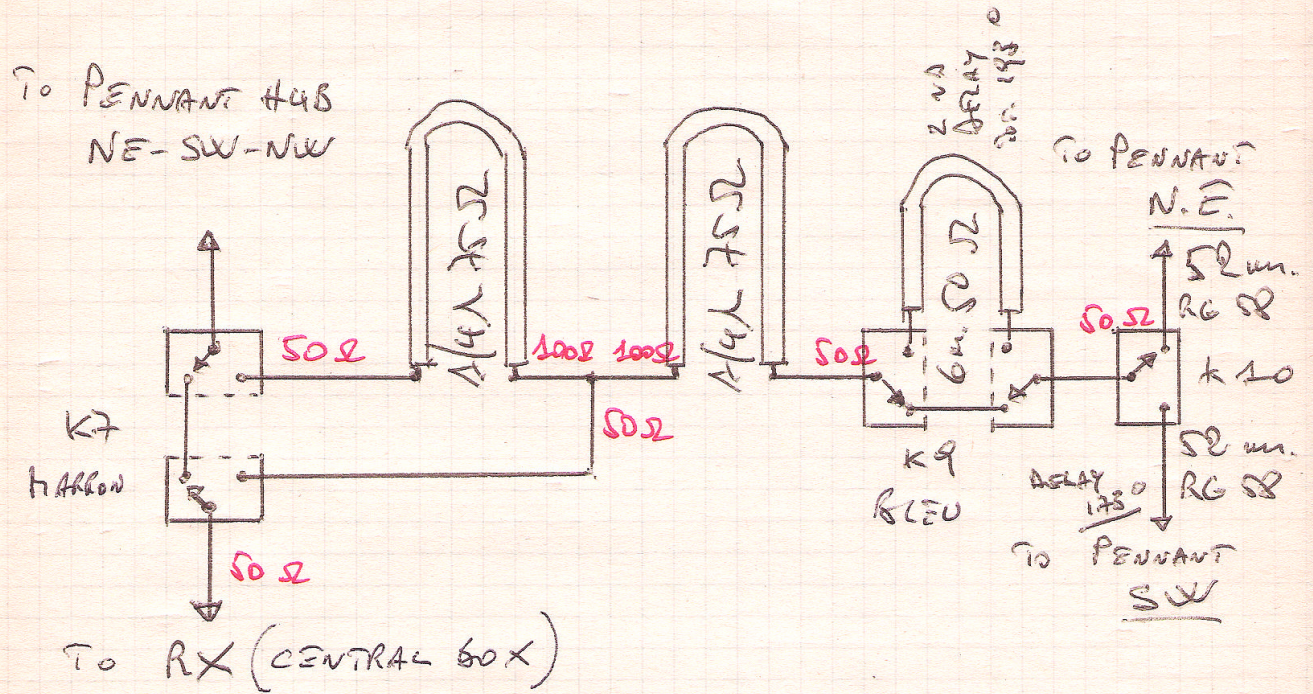 To PENNANT HUB
NE-SW-NW
1/4λ 75Ω
1/4λ 75Ω
2 ND
DELAY
193°
6m. 50Ω
TO PENNANT
N.E.
52 m.
RG 58
50Ω
100Ω
100Ω
50Ω
50Ω
K10
K7
MARRON
50Ω
K9
BLEU
52 m.
RG 58
DELAY
173°
TO PENNANT
SW
50Ω
To RX (CENTRAL BOX)